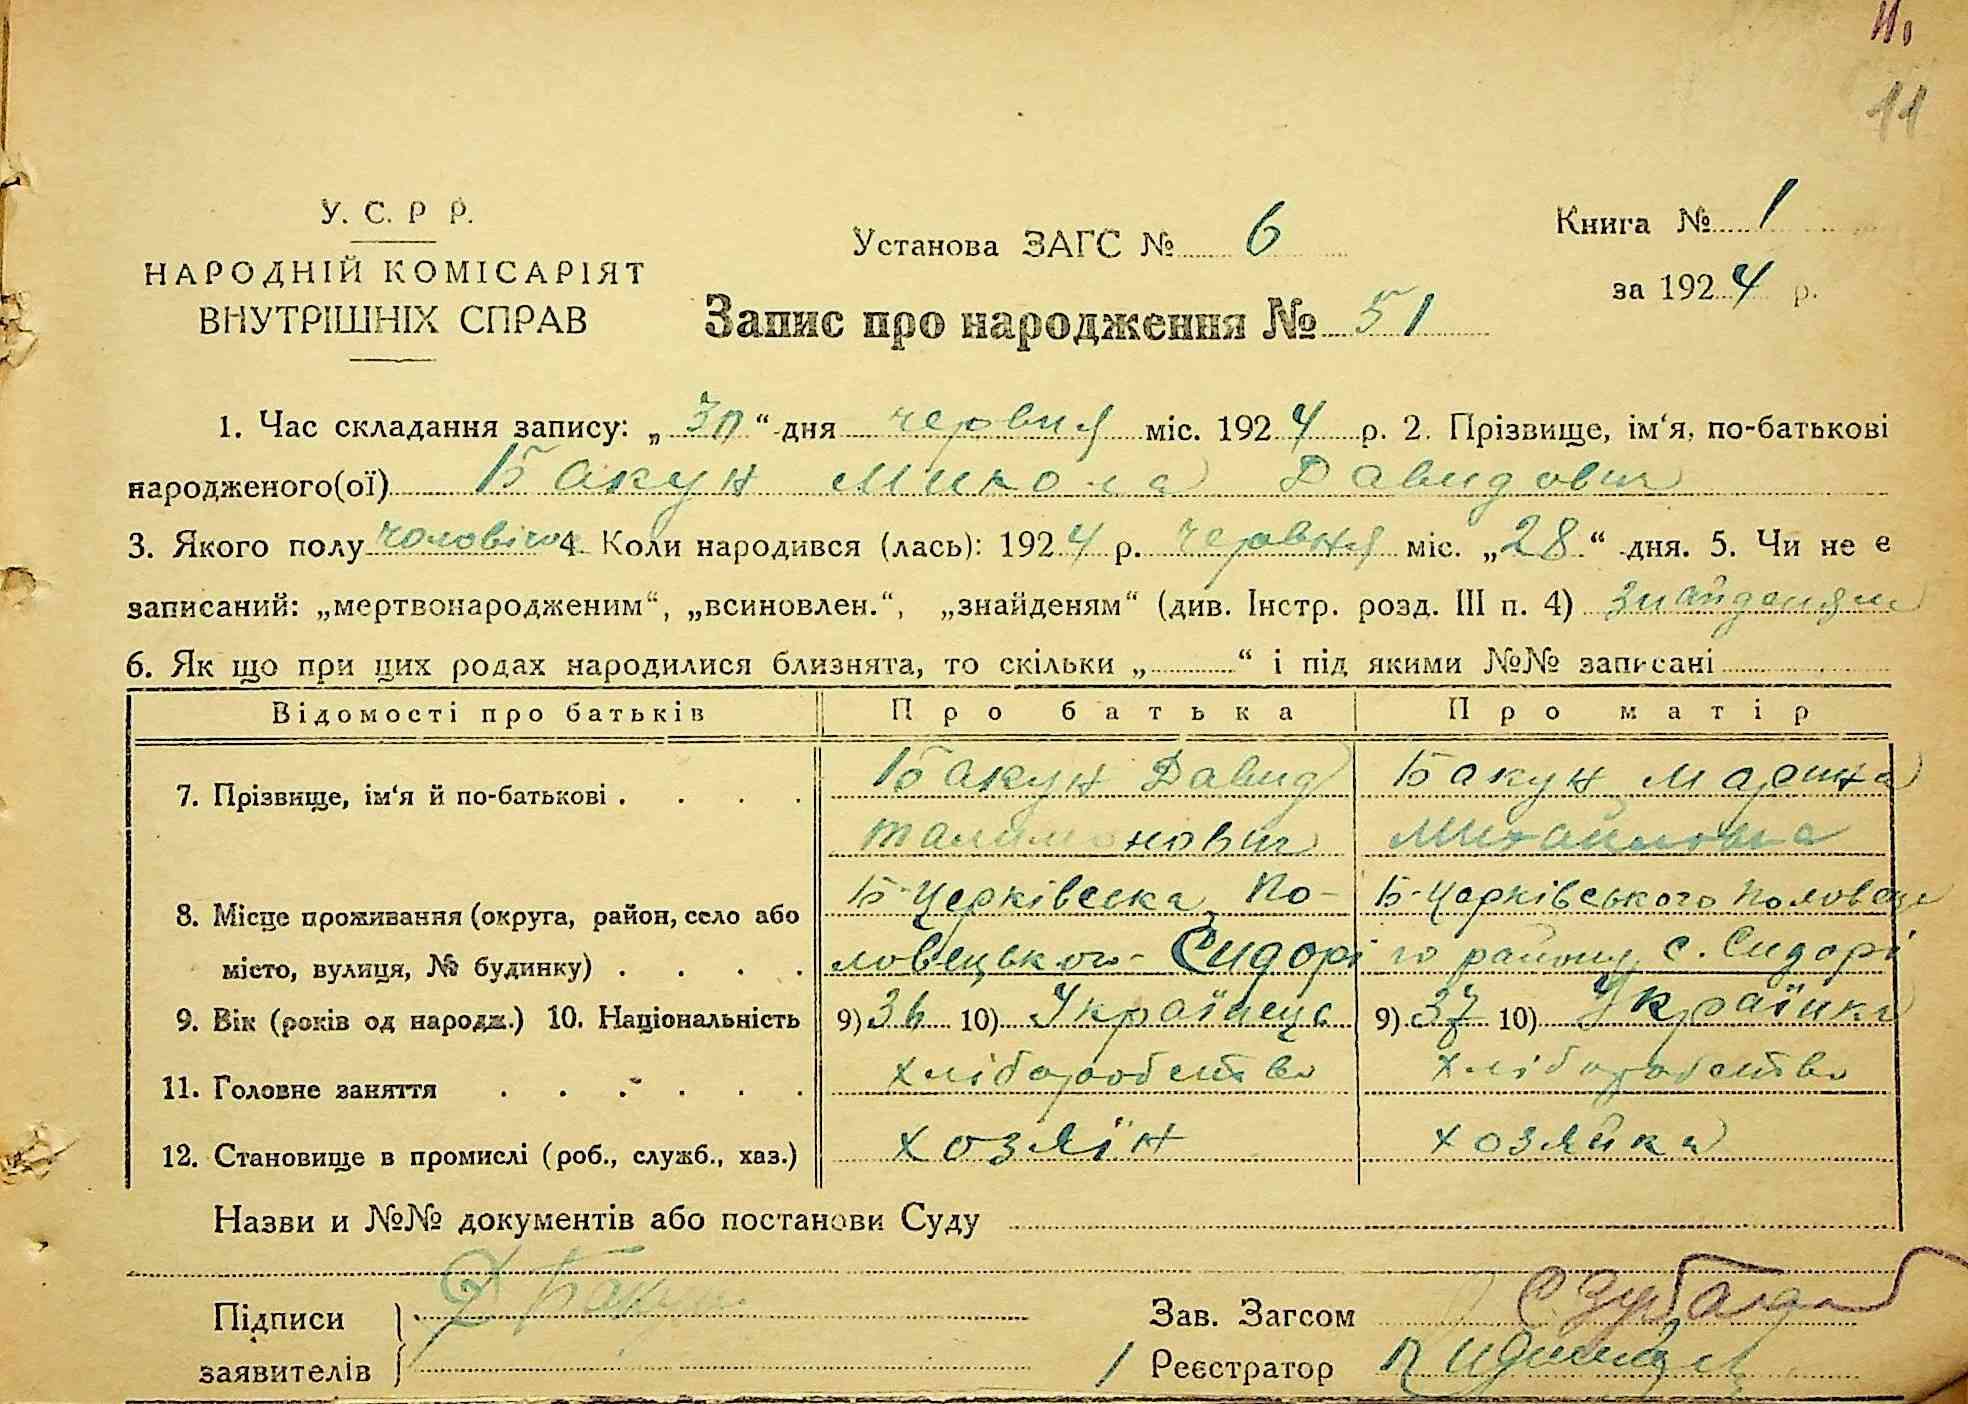 11
11
У. С. Р Р.
НАРОДНІЙ КОМІСАРІЯТ
ВНУТРІШНІХ СПРАВ
Установа ЗАГС № 6
Книга № 1
за 1924 р.
Запис про народження № 51
1. Час складання запису: „30“ дня червня міс. 1924 р. 2. Прізвище, ім‘я, по-батькові
народженого(ої) Бакун Микола Давидович
3. Якого полу 4. Коли народився (лась): 1924 р. червня міс. „28“ дня. 5. Чи не е
записаний: „мертвонародженим“, „всиновлен.“, „знайденям“ (див. Інстр. розд. III п. 4) знайденям
6. Як що при цих родах народилися близнята, то скільки „ “ і під якими №№ записані
Відомості про батьків Про батька Про матір
7. Прізвище, ім‘я й по-батькові . . . . Бакун Давид Бакун Марина
нович Михайловна
8. Місце проживання (округа, район, село або Б-Церківська, По- Б-Церківського Половець
місто, вулиця, № будинку) . . . . ловецького Сидорі го району с. Сидорі
9. Вік (років од народж.) 10. Національність 9) 36 10) Українець 9) 37 10) Українка
11. Головне заняття . . . . . . хліборобство хліборобство
12. Становище в промислі (роб., служб., хаз.) хозяїн хозяйка
Назви и №№ документів або постанови Суду
Підписи Д Бакун Зав. Загсом
заявителів Реєстратор